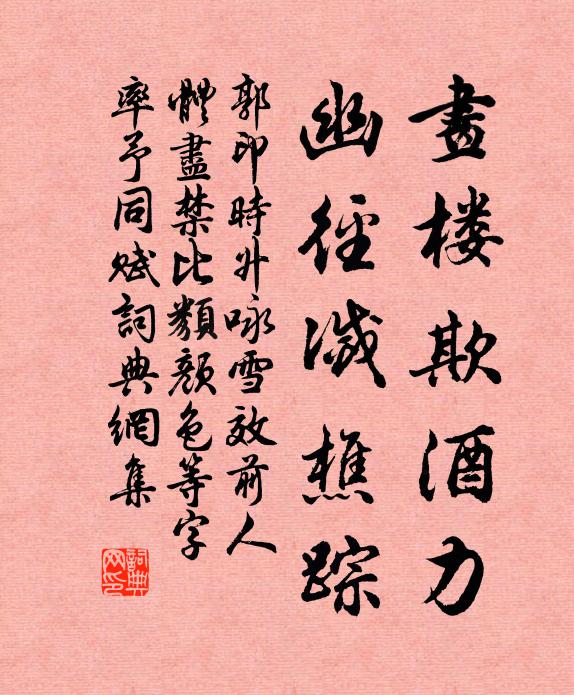 畫楼欺酒力
幽径滅樵踪
郭印時升咏雪效前人
體盡禁比類顔色等字
率予同赋詞典網集
詞典
网印